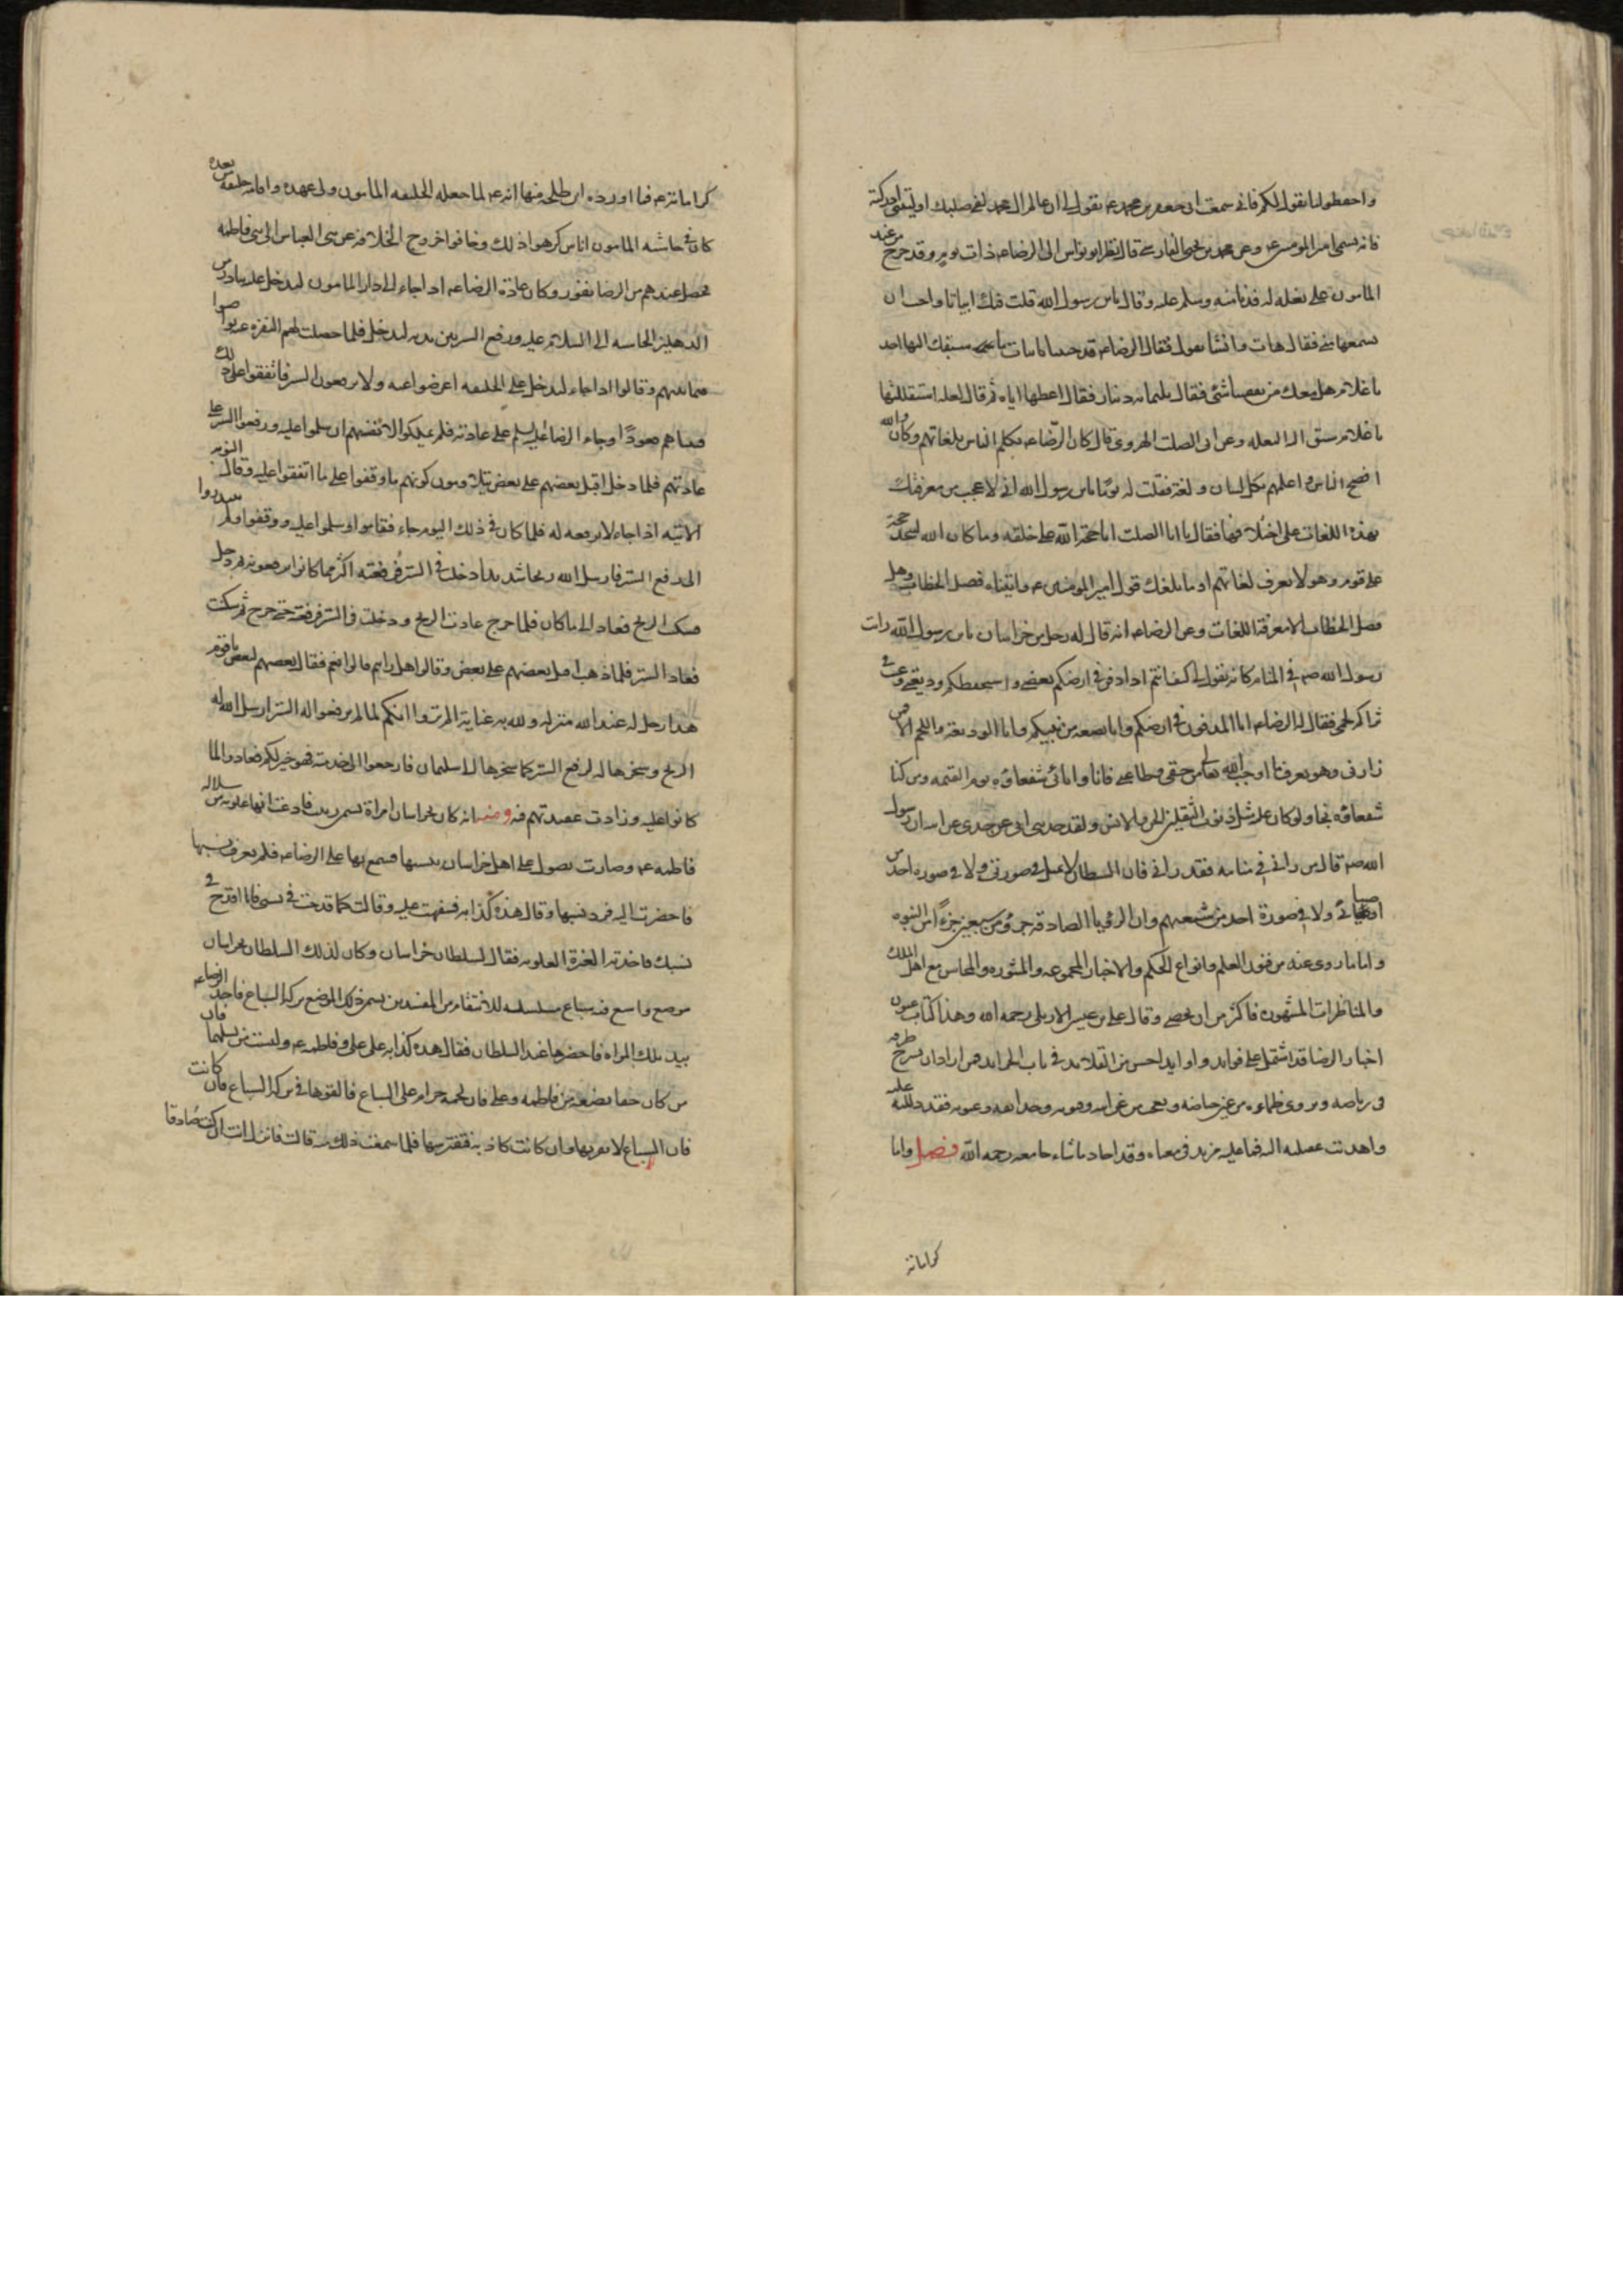 واحفظوا ما يقول لكم فانى سمعت ابى جعفر بن محمد عم يقول لى ان عالم ال محمد لفى صلبك وليتنى ادركته
فانه سمى امير المومنين عم وعن محمد بن يحيى الفارسى قال نظر ابو نواس الى الرضا عم ذات يوم وقد خرج من عند
المامون على بغله له فدنا منه وسلم عليه وقال يا بن رسول الله قلت فيك ابياتا واحب ان
تسمعها منى فقال هات وانشا يقول فقال الرضا عم قد جئتنا بابيات ما سبقك اليها احد
يا غلام هل معك من نفقتنا شئ فقال ثلثمايه دينار فقال اعطها اياه ثم قال لعله استقلها
يا غلام سق اليه البغله وعن ابى الصلت الهروى قال كان الرضا عم يكلم الناس بلغاتهم وكان والله
افصح الناس واعلمهم بكل لسان ولغة فقلت له يوما يا بن رسول الله انى لاعجب من معرفتك
بهذه اللغات على اختلافها فقال يا ابا الصلت انا حجة الله على خلقه وما كان الله ليتخذ حجة
على قوم وهو لا يعرف لغاتهم او ما بلغك قول امير المومنين عم واتيناه فصل الخطاب وهل
فصل الخطاب الا معرفة اللغات وعن الرضا عم انه قال له رجل من خراسان يا بن رسول الله رايت
رسول الله صم فى المنام كانه يقول لى كيف انتم اذا دفن فى ارضكم بعضى واستحفظتكم وديعتى وغيب فى
ثراكم لحمى فقال له الرضا عم انا المدفون فى ارضكم وانا بضعه من نبيكم وانا الوديعة واللحم الا من
زارنى وهو يعرف ما اوجب الله تعالى من حقى وطاعتى فانا وابائى شفعاؤه يوم القيمه ومن كنا
شفعاؤه نجا ولو كان عليه مثل ذنوب الثقلين الجن والانس ولقد حدثنى ابى عن جدى عن ابيه ان رسول
الله صم قال من رانى فى منامه فقد رانى فان الشيطان لا يتمثل فى صورتى ولا فى صوره احد من
اوصيائى ولا فى صورة احد من شيعتهم وان الرؤيا الصادقه جزؤ من سبعين جزءا من النبوه
واما ما روى عنه من فنون العلم وانواع الحكم والاخبار المجموعه والمنثوره والمجالس مع اهل الملل
والمناظرات المشهوره فاكثر من ان يحصى وقال على بن عيسى الاربلى رحمه الله وهذا كتاب عيون
اخبار الرضا قد اشتمل على فوايد واوابد احسن من القلايد فى باب الخرايد فمن اراد ان يسرح طرفه
فى رياضه ويروى ظماءه من غير حياضه ويعجب من غرايبه وفنونه وحدايقه وعيونه فقد دللته عليه
واهديت عقيلته اليه فما عليه مزيد فى معناه وقد اجاد ما شاء جامعه رحمه الله فصل واما
كراماته
كراماته عم فما اورده ابن طلحه منها انه عم لما جعله الخليفه المامون ولى عهده واقامه خليفه من بعده
كان فى حاشيه المامون اناس كرهوا ذلك وخافوا خروج الخلافة عن بنى العباس الى بنى فاطمه
فحصل عندهم من الرضا نفور وكان عادة الرضا عم اذا جاء الى دار المامون ليدخل عليه بادر من
الدهليز الحاشيه الى السلام عليه ورفع الستر بين يديه ليدخل فلما حصلت لهم النفرة عنه تواصوا
فيما بينهم وقالوا اذا جاء ليدخل على الخليفه اعرضوا عنه ولا ترفعوا الستر فاتفقوا على ذلك
فبينا هم قعودا وجاء الرضا عليه سلم على عادته فلم يملكوا انفسهم ان سلموا عليه ورفعوا الستر على
عادتهم فلما دخل اقبل بعضهم على بعض يتلاومون كونهم ما وقفوا على ما اتفقوا عليه وقالوا النوبه
الاتيه اذا جاء لا نرفعه له فلما كان فى ذلك اليوم جاء فقاموا وسلموا عليه ووقفوا ولم يبتدروا
الى رفع الستر فارسل الله ريحا شديدا دخلت فى الستر فرفعته اكثر مما كانوا يرفعونه ثم دخل
فسكت الريح فعاد الى ما كان فلما خرج عادت الريح ودخلت فى الستر فرفعته حتى خرج ثم سكنت
فعاد الستر فلما ذهب اقبل بعضهم على بعض وقالوا هل رايتم قالوا نعم فقال بعضهم لبعض يا قوم
هذا رجل له عند الله منزله ولله به عناية الم تروا انكم لما لم ترفعوا له الستر ارسل الله له
الريح وسخرها له لرفع الستر كما سخرها لسليمان فارجعوا الى خدمته فهو خير لكم فعادوا الى ما
كانوا عليه وزادت عقيدتهم فيه ومنه انه كان بخراسان امراة تسمى زينب فادعت انها علويه من سلاله
فاطمه عم وصارت تصول على اهل خراسان بنسبها فسمع بها على الرضا عم فلم يعرف نسبها
فاحضرت اليه فرد نسبها وقال هذه كذابه فسفهت عليه وقالت كما قدحت فى نسبى فانا اقدح فى
نسبك فاخذته الغيرة العلويه فقال لسلطان خراسان وكان لذلك السلطان بخراسان
موضع واسع فيه سباع مسلسله للانتقام من المفسدين يسمى ذلك الموضع بركه السباع فاخذ الرضا عم
بيد تلك المراه فاحضرها عند السلطان فقال هذه كذابه على على وفاطمه عم وليست من نسلهما فان
من كان حقا بضعه من فاطمه وعلى فان لحمه حرام على السباع فالقوها فى بركه السباع فان كانت صادقا
فان السباع لا تقربها وان كانت كاذبه فتفترسها فلما سمعت ذلك منه قالت فانزل انت ان كنت صادقا